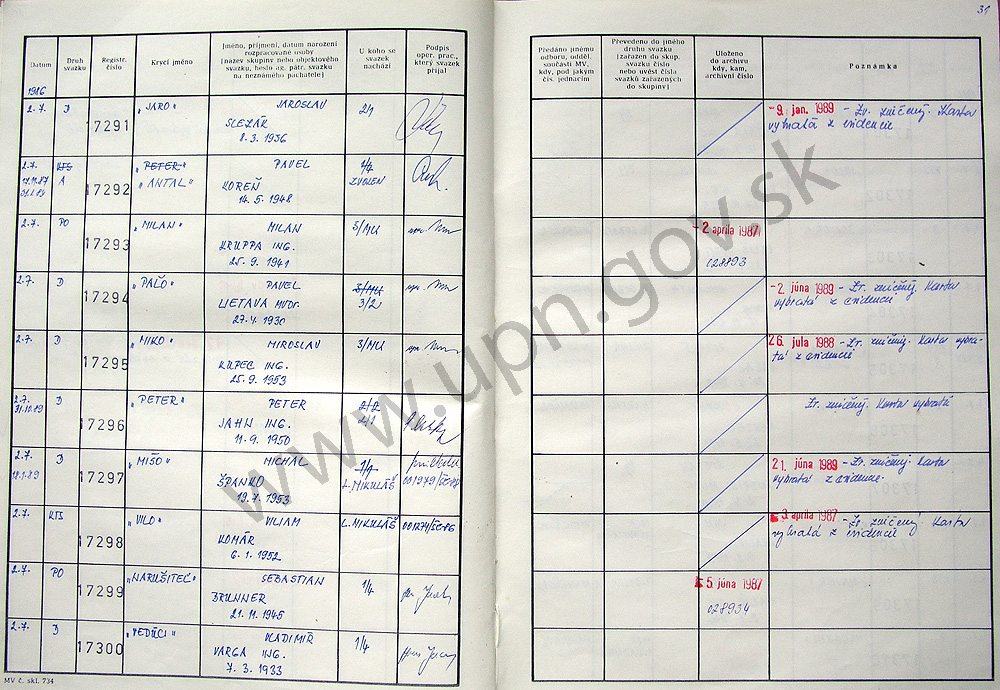 31
Datum
Druh svazku
Registr. číslo
Krycí jméno
Jméno, příjmení, datum narození
rozpracované osoby
(název skupiny nebo objektového
svazku, heslo ag. pátr. svazku
na neznámého pachatele)
U koho se
svazek
nachází
Podpis
oper. prac.,
který svazek
přijal
Předáno jinému
odboru, odděl.
součásti MV,
kdy, pod jakým
čís. jednacím
Převedeno do jiného
druhu svazku
(zařazen do skup.
svazku číslo
nebo uvést čísla
svazků zařazených
do skupiny)
Uloženo
do archivu
kdy, kam,
archivní číslo
Poznámka
1986
2.7. D 17291 "JARO" JAROSLAV 2/1
SLEZÁK
8.3.1936
- 9. jan. 1989 - Zv. zničený. Karta
vybratá z evidencie
2.7. KTS 17292 "PETER" PAVEL 1/4
A "ANTAL" KOREŇ ZVOLEN
14.5.1948
2.7. PO 17293 "MILAN" MILAN 3/MU
KRUPPA ING.
25.9.1941
- 2 apríla 1987
028893
2.7. D 17294 "PAĽO" PAVEL 3/MU
LIETAVA MVDr. 3/2
27.4.1930
- 2. júna 1989 - Zv. zničený. Karta
vybratá z evidencie.
2.7. D 17295 "MIKO" MIROSLAV 3/MU
KUPEC ING.
25.9.1953
26. jula 1988 - Zv. zničený. Karta vybra-
tá z evidencie
2.7. D 17296 "PETER" PETER 2/2
31.10.89 JAHN ING. 2/1
11.9.1950
Zv. zničený. Karta vybratá
2.7. D 17297 "MIŠO" MICHAL 1/4
18.1.89 ŠPANKO L. MIKULÁŠ
19.7.1953
21. júna 1989 - Zv. zničený. Karta
vybratá z evidencie.
2.7. KTS 17298 "VILO" VILIAM L. MIKULÁŠ
KOMÁR
6.1.1952
3. apríla 1987 - Zv. zničený. Karta
vybratá z evidencie
2.7. PO 17299 "NARUŠITEĽ" SEBASTIAN 1/4
BRUNNER
21.11.1945
5. júna 1987
028934
2.7. D 17300 "VEDÚCI" VLADIMÍR 1/4
VARGA ING.
7.3.1933
MV č. skl. 734
www.upn.gov.sk